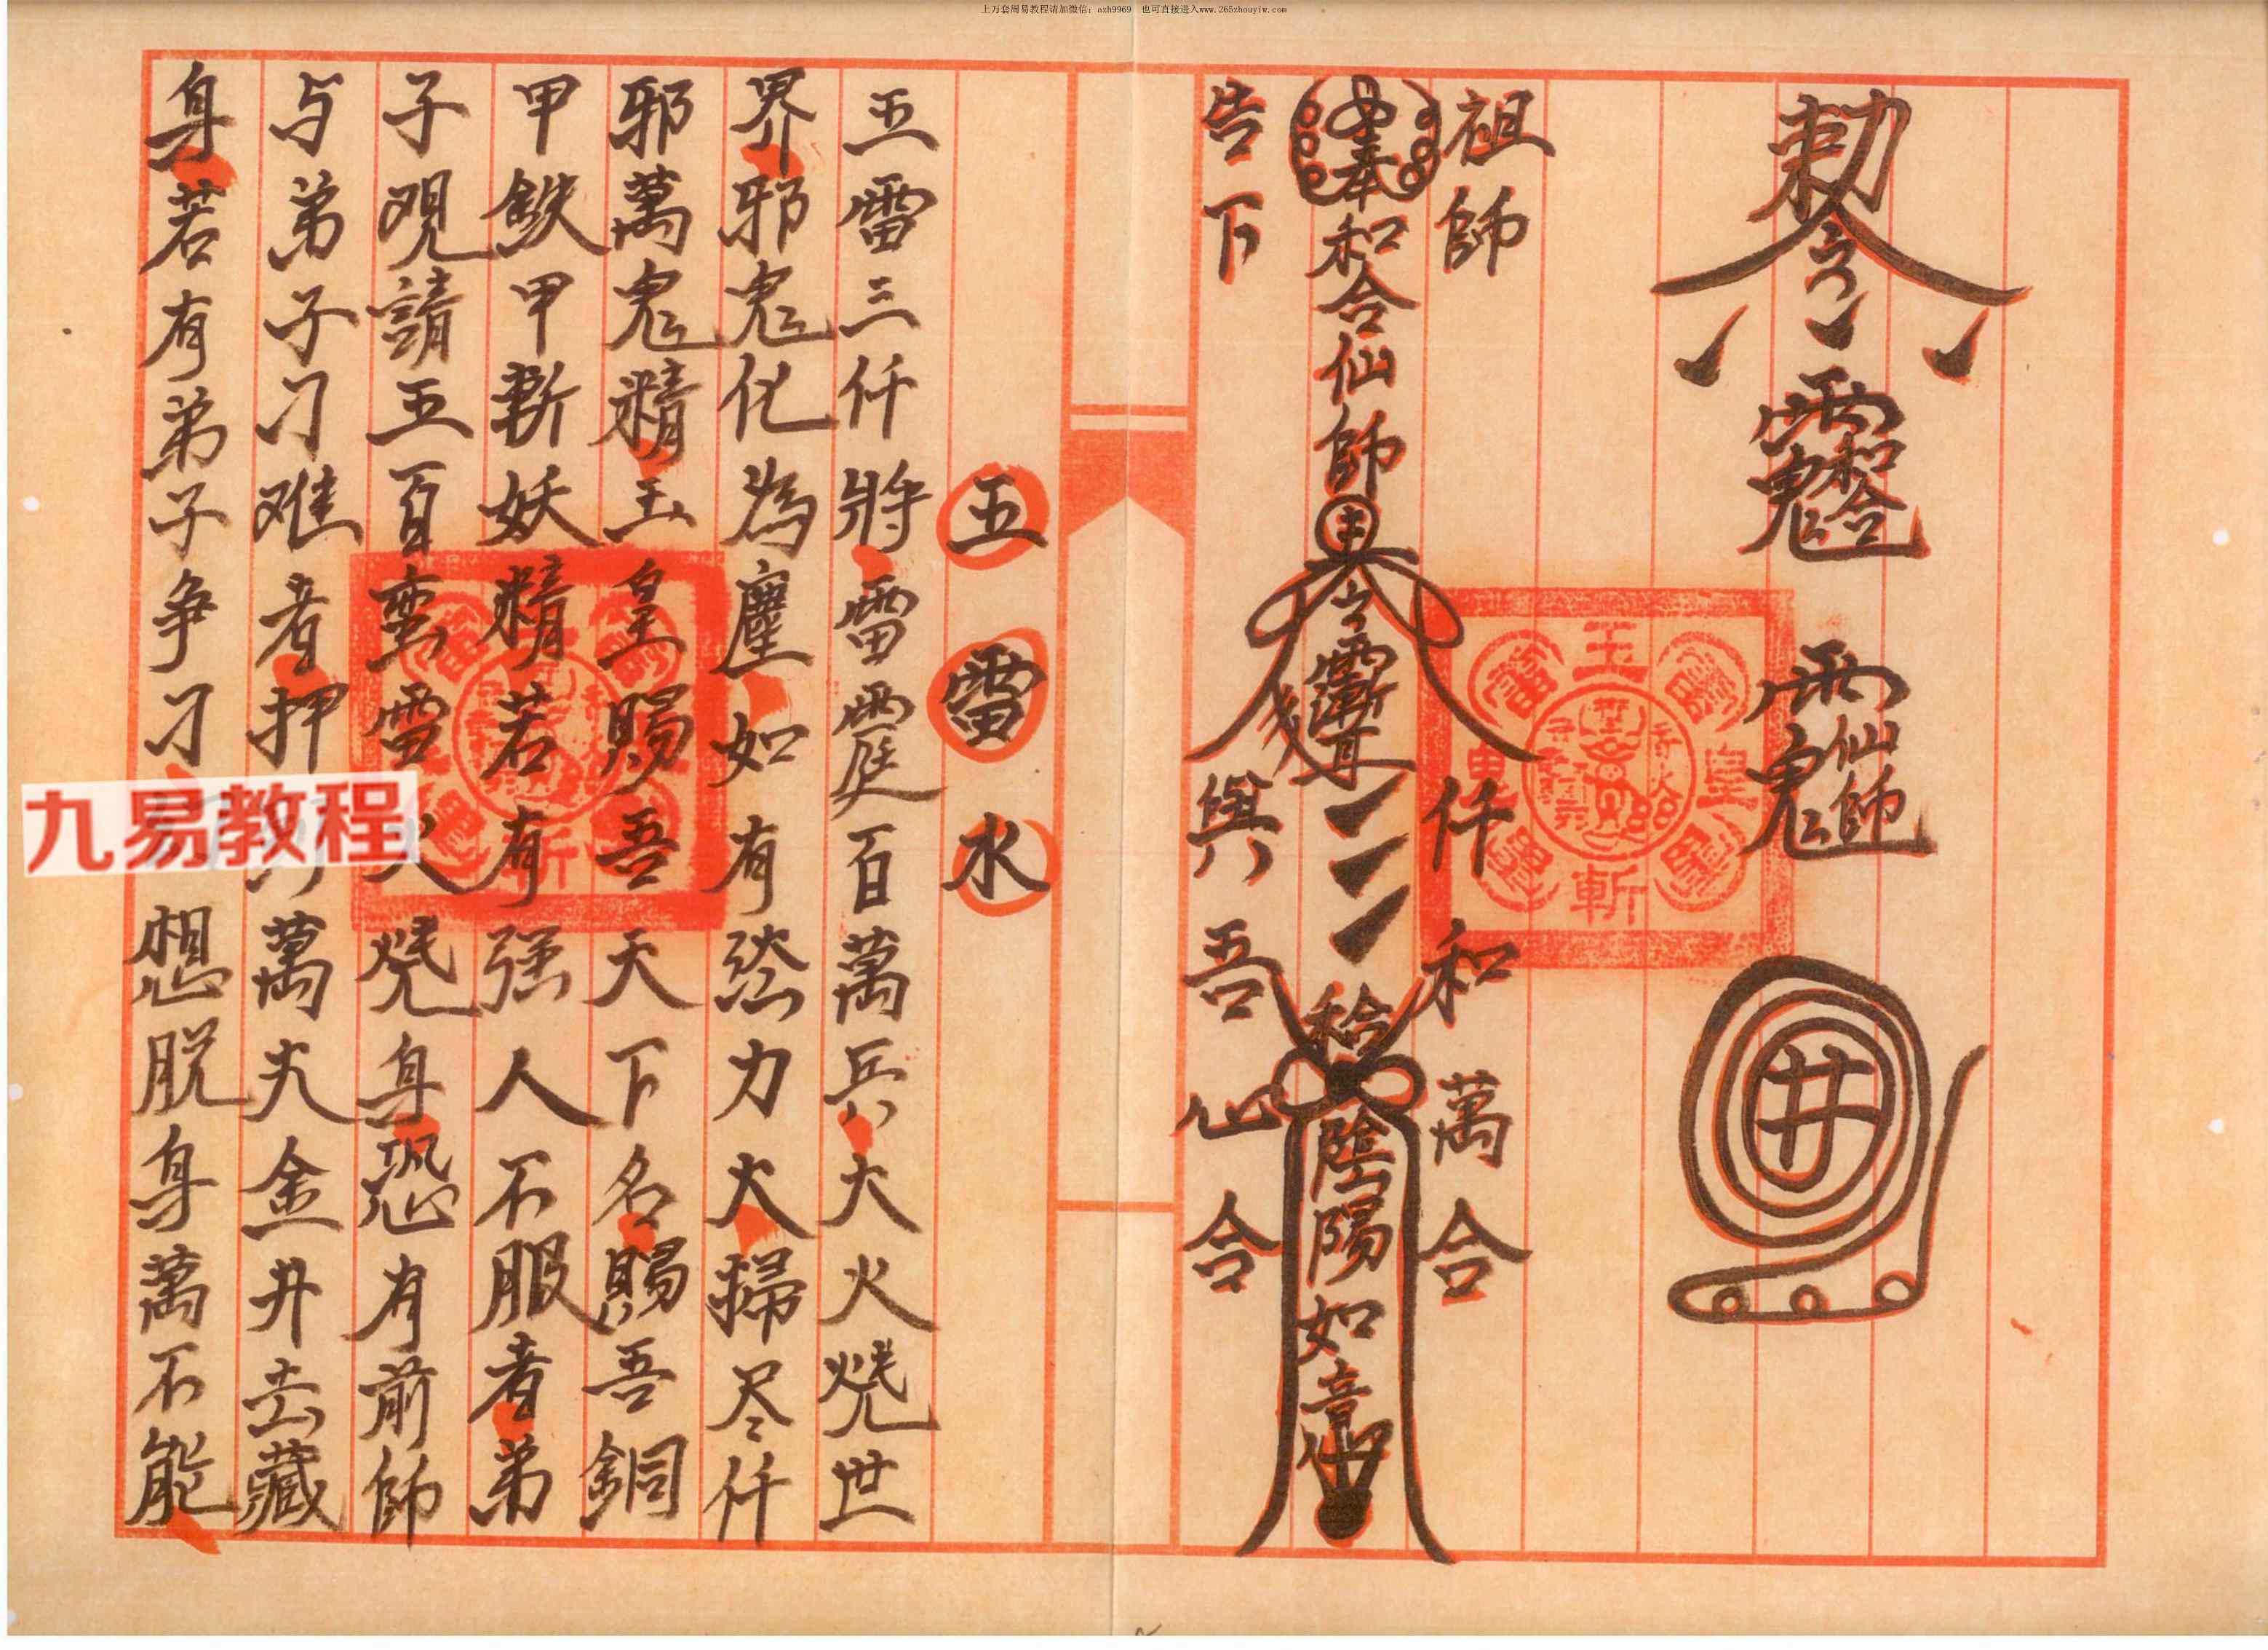 上万套周易教程请加微信：azh9969 也可直接进入www.265zhouyiw.com
敕令
和合
仙師
井
祖師
奉和合仙師
告下
仟和萬合
陰陽如意
與吾心合
五雷水
五雷三仟將雷霆百萬兵大火燒世
界邪鬼化為塵如有 力火掃尽仟
邪萬鬼精玉皇賜吾天下名賜吾銅
甲鉄甲斬妖精若有强人不服者弟
子覌請五百蛮雷火燒身恐有前師
与弟子刁难者押 萬丈金井去藏
身若有弟子争刁 想脱身萬不能
九易教程
玉皇
斬